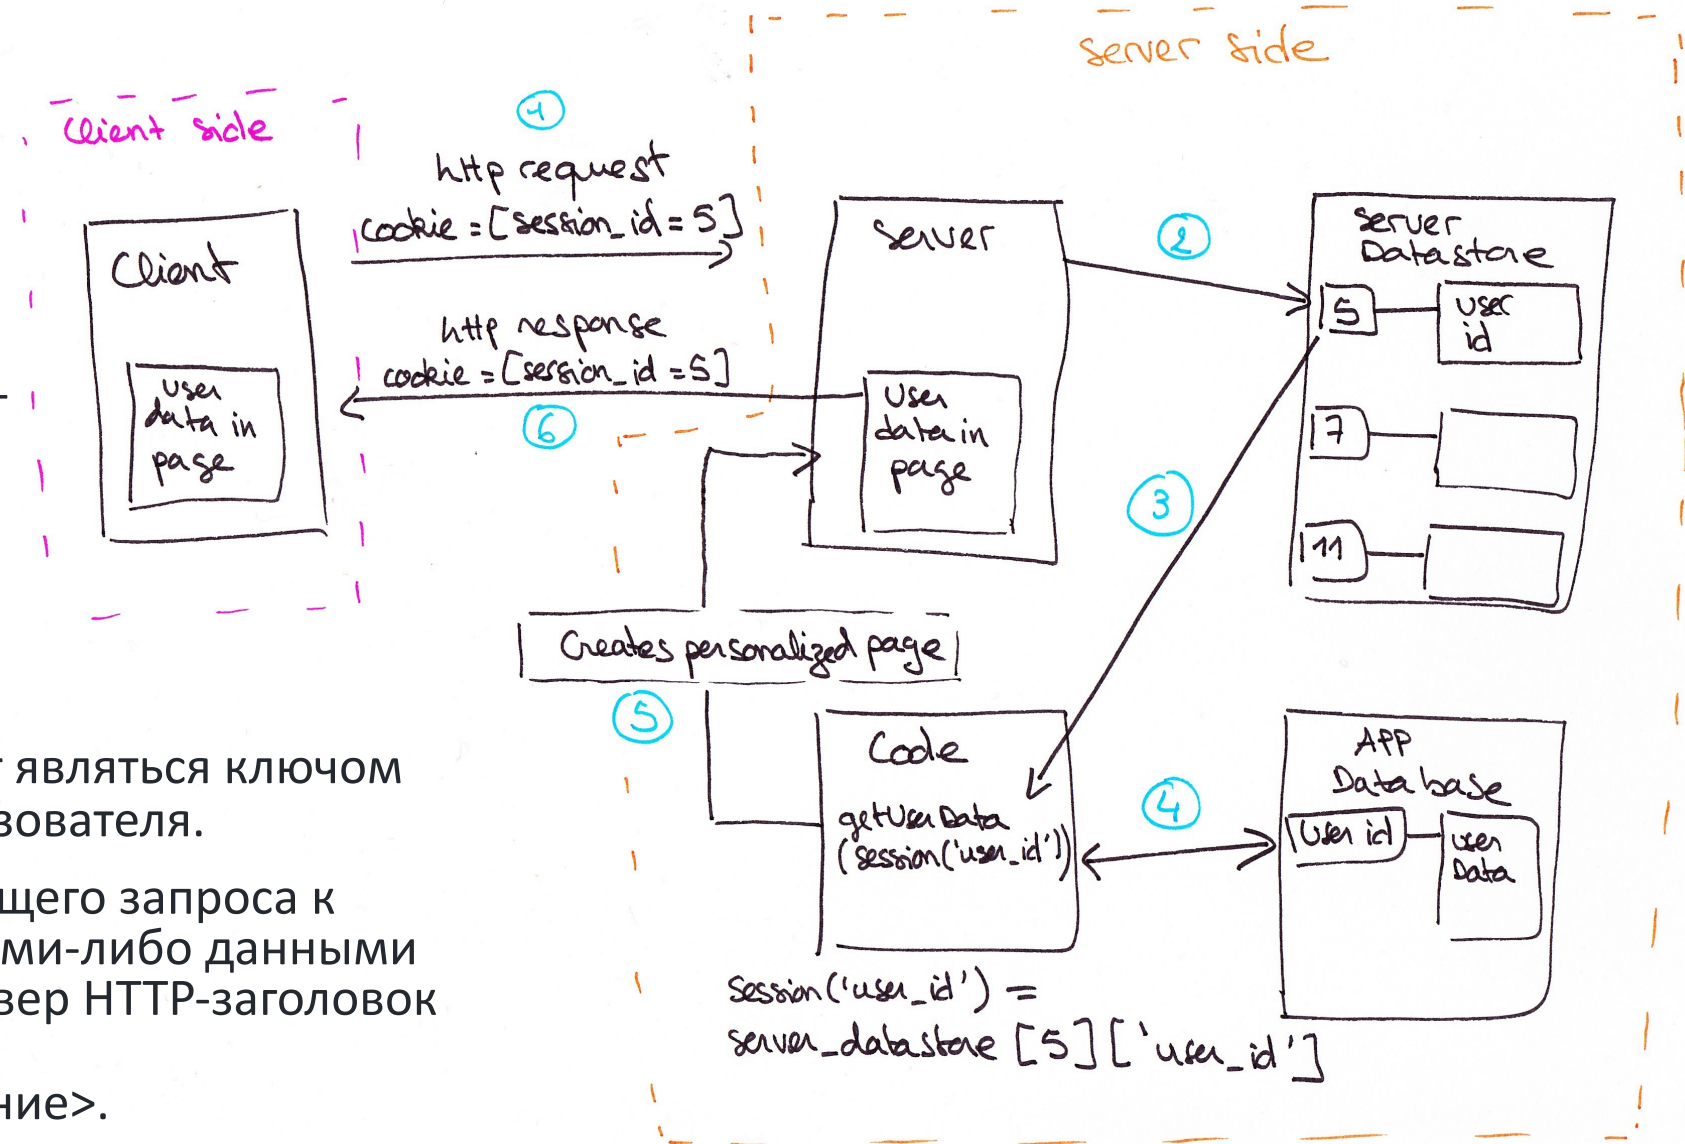 server side
client side
1
http request
cookie = [session_id = 5]
Client
user
data in
page
http response
cookie = [session_id = 5]
6
server
User
data in
page
2
server
Datastore
5
user
id
7
11
3
Creates personalized page
5
Code
getUserData
(session('user_id'))
4
APP
Database
User id
user
Data
session('user_id') =
server_datastore [5] ['user_id']
являться ключом
зователя.
щего запроса к
ми-либо данными
зер HTTP-заголовок
ние>.